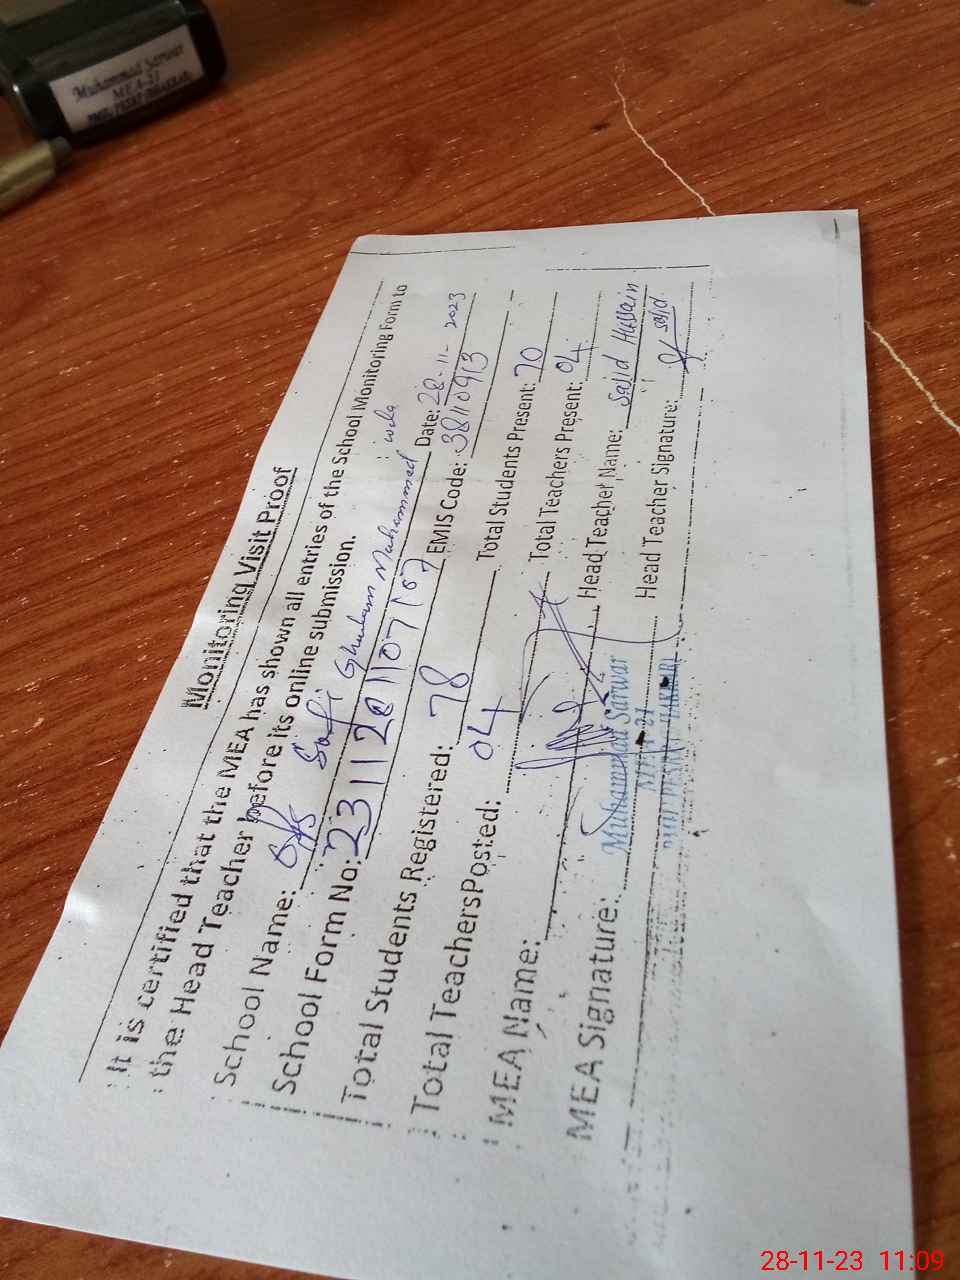 Muhammad Sarwar
MEA-21
Monitoring Visit Proof
It is certified that the MEA has shown all entries of the School Monitoring Form to
the Head Teacher before its online submission.
School Name: GPS Safi Ghulam Muhammad wala
School Form No: Date: 28-11-2023
Total Students Registered: 78 EMIS Code: 38110913
Total Teachers Posted: 04 Total Students Present: 70
MEA Name: Total Teachers Present: 04
MEA Signature: Head Teacher Name: Sajid Hussain
Head Teacher Signature: Sajid
Muhammad Sarwar
MEA-21
28-11-23 11:09